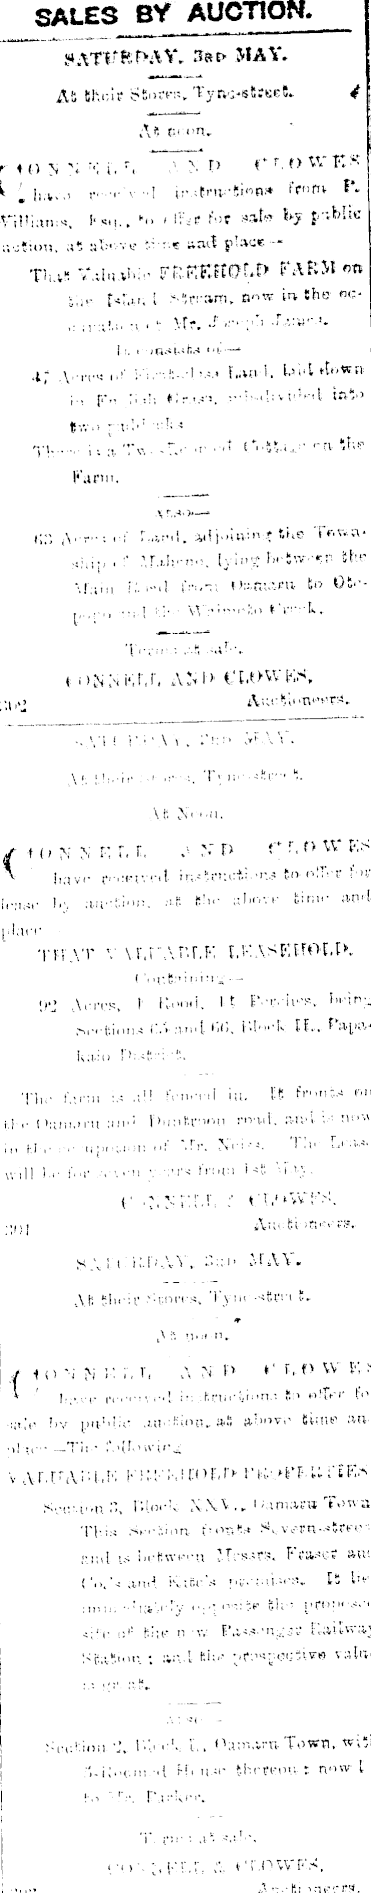 SALES BY AUCTION.
SATURDAY, 3RD MAY.
At their Stores, Tyne-street.
At noon.
CONNELL AND CLOWES
have received instructions from P.
Williams, Esq., to offer for sale by public
auction, at above time and place—
That Valuable FREEHOLD FARM on
the Island Stream, now in the oc-
cupation of Mr. Joseph James.
It consists of—
47 Acres of First-class Land, laid down
in English Grass, subdivided into
two paddocks
There is a Two-Roomed Cottage on the
Farm.
ALSO—
63 Acres of Land, adjoining the Town-
ship of Maheno, lying between the
Main Road from Oamaru to Ote-
popo and the Waimoto Creek.
Terms at sale.
CONNELL AND CLOWES,
302 Auctioneers.
SATURDAY, 3RD MAY.
At their Stores, Tyne-street.
At Noon.
CONNELL AND CLOWES
have received instructions to offer for
lease by auction, at the above time and
place
THAT VALUABLE LEASEHOLD,
Containing—
92 Acres, 1 Rood, 14 Perches, being
Sections 65 and 66, Block II., Papa-
kaio District.
The farm is all fenced in. It fronts on
the Oamaru and Duntroon road, and is now
in the occupation of Mr. The Lease
will be for seven years from 1st May.
CONNELL & CLOWES,
301 Auctioneers.
SATURDAY, 3RD MAY.
At their Stores, Tyne-street.
At noon.
CONNELL AND CLOWES
have received instructions to offer for
sale by public auction, at above time and
place—The following
VALUABLE FREEHOLD PROPERTIES
Section 3, Block XXV., Oamaru Town
This Section fronts Severn-street
and is between Messrs. Fraser and
Co.'s and Kite's premises. It lies
immediately opposite the proposed
site of the new Passenger Railway
Station; and the prospective value
is great.
ALSO
Section 2, Block I., Oamaru Town, with
5-Roomed House thereon; now l
to Mr. Parker.
Terms at sale.
CONNELL & CLOWES,
Auctioneers.